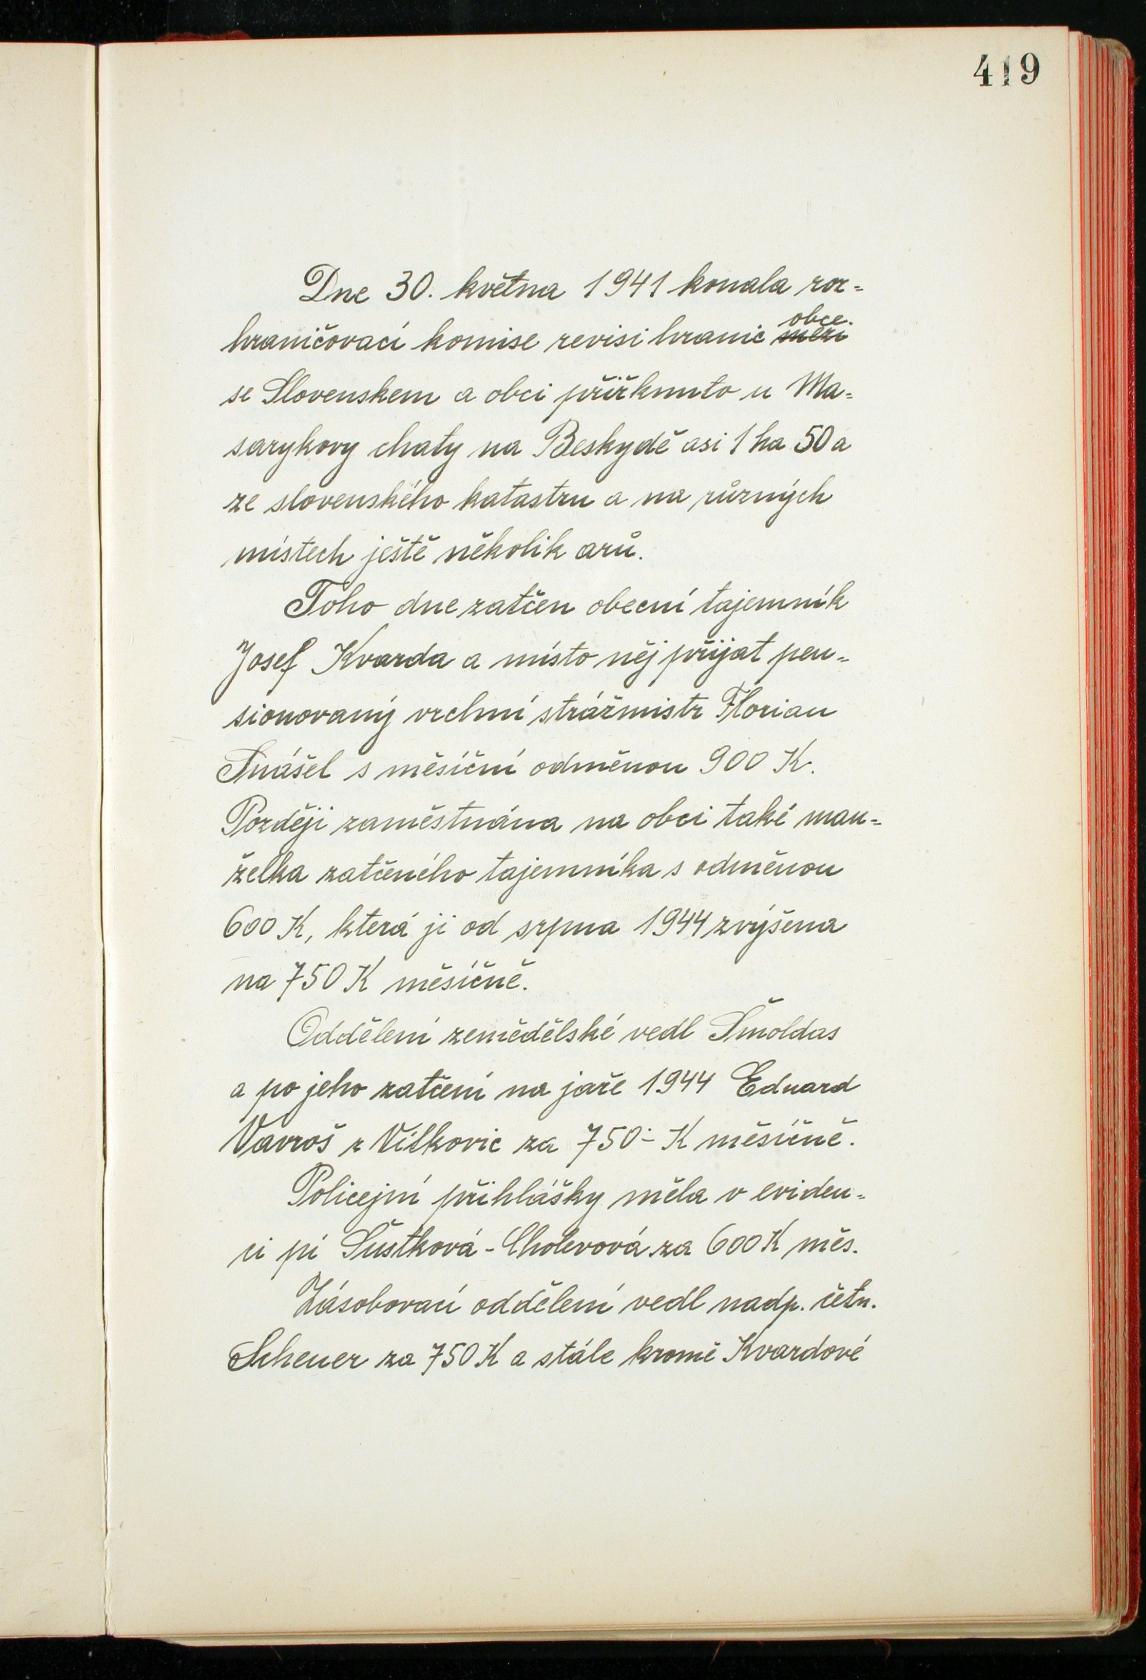 419
Dne 30. května 1941 konala roz=
hraničovací komise revisi hranic mezi obce
se Slovenskem a obci přiřknuto u Ma=
sarykovy chaty na Beskydě asi 1 ha 50 a
ze slovenského katastru a na různých
místech ještě několik arů.
Toho dne zatčen obecní tajemník
Josef Kvarda a místo něj přijat pen=
sionovaný vrchní strážmistr Florian
Snášel s měsíční odměnou 900 K.
Později zaměstnána na obci také man=
želka zatčeného tajemníka s odměnou
600 K, která jí od srpna 1944 zvýšena
na 750 K měsíčně.
Oddělení zemědělské vedl Šmoldas
a po jeho zatčení na jaře 1944 Eduard
Vavroš z Vítkovic za 750·- K měsíčně.
Policejní přihlášky měla v eviden=
ci pí Šustková - Cholevová za 600 K měs.
Zásobovací oddělení vedl nadp. četn.
Scheuer za 750 K a stále kromě Kvardové